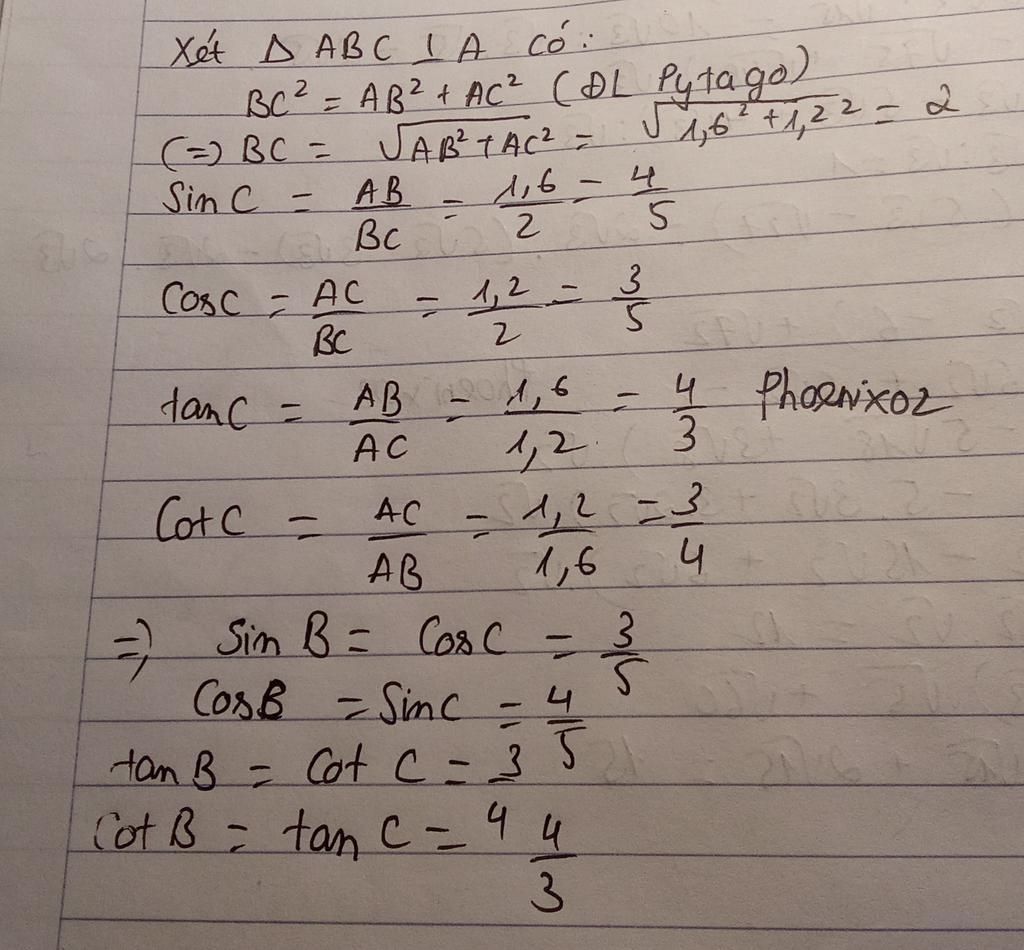 Xét Δ ABC ⊥ A có:
BC² = AB² + AC² (ĐL Pytago)
(=) BC = √AB² + AC² = √1,6² + 1,2² = 2
Sin C = AB/BC = 1,6/2 = 4/5
CosC = AC/BC = 1,2/2 = 3/5
tanC = AB/AC = 1,6/1,2 = 4/3 Phoenixoz
Cot C = AC/AB = 1,2/1,6 = 3/4
=) Sin B = Cos C = 3/5
CosB = SinC = 4/5
tan B = Cot C = 3/4
Cot B = tan C = 4/3